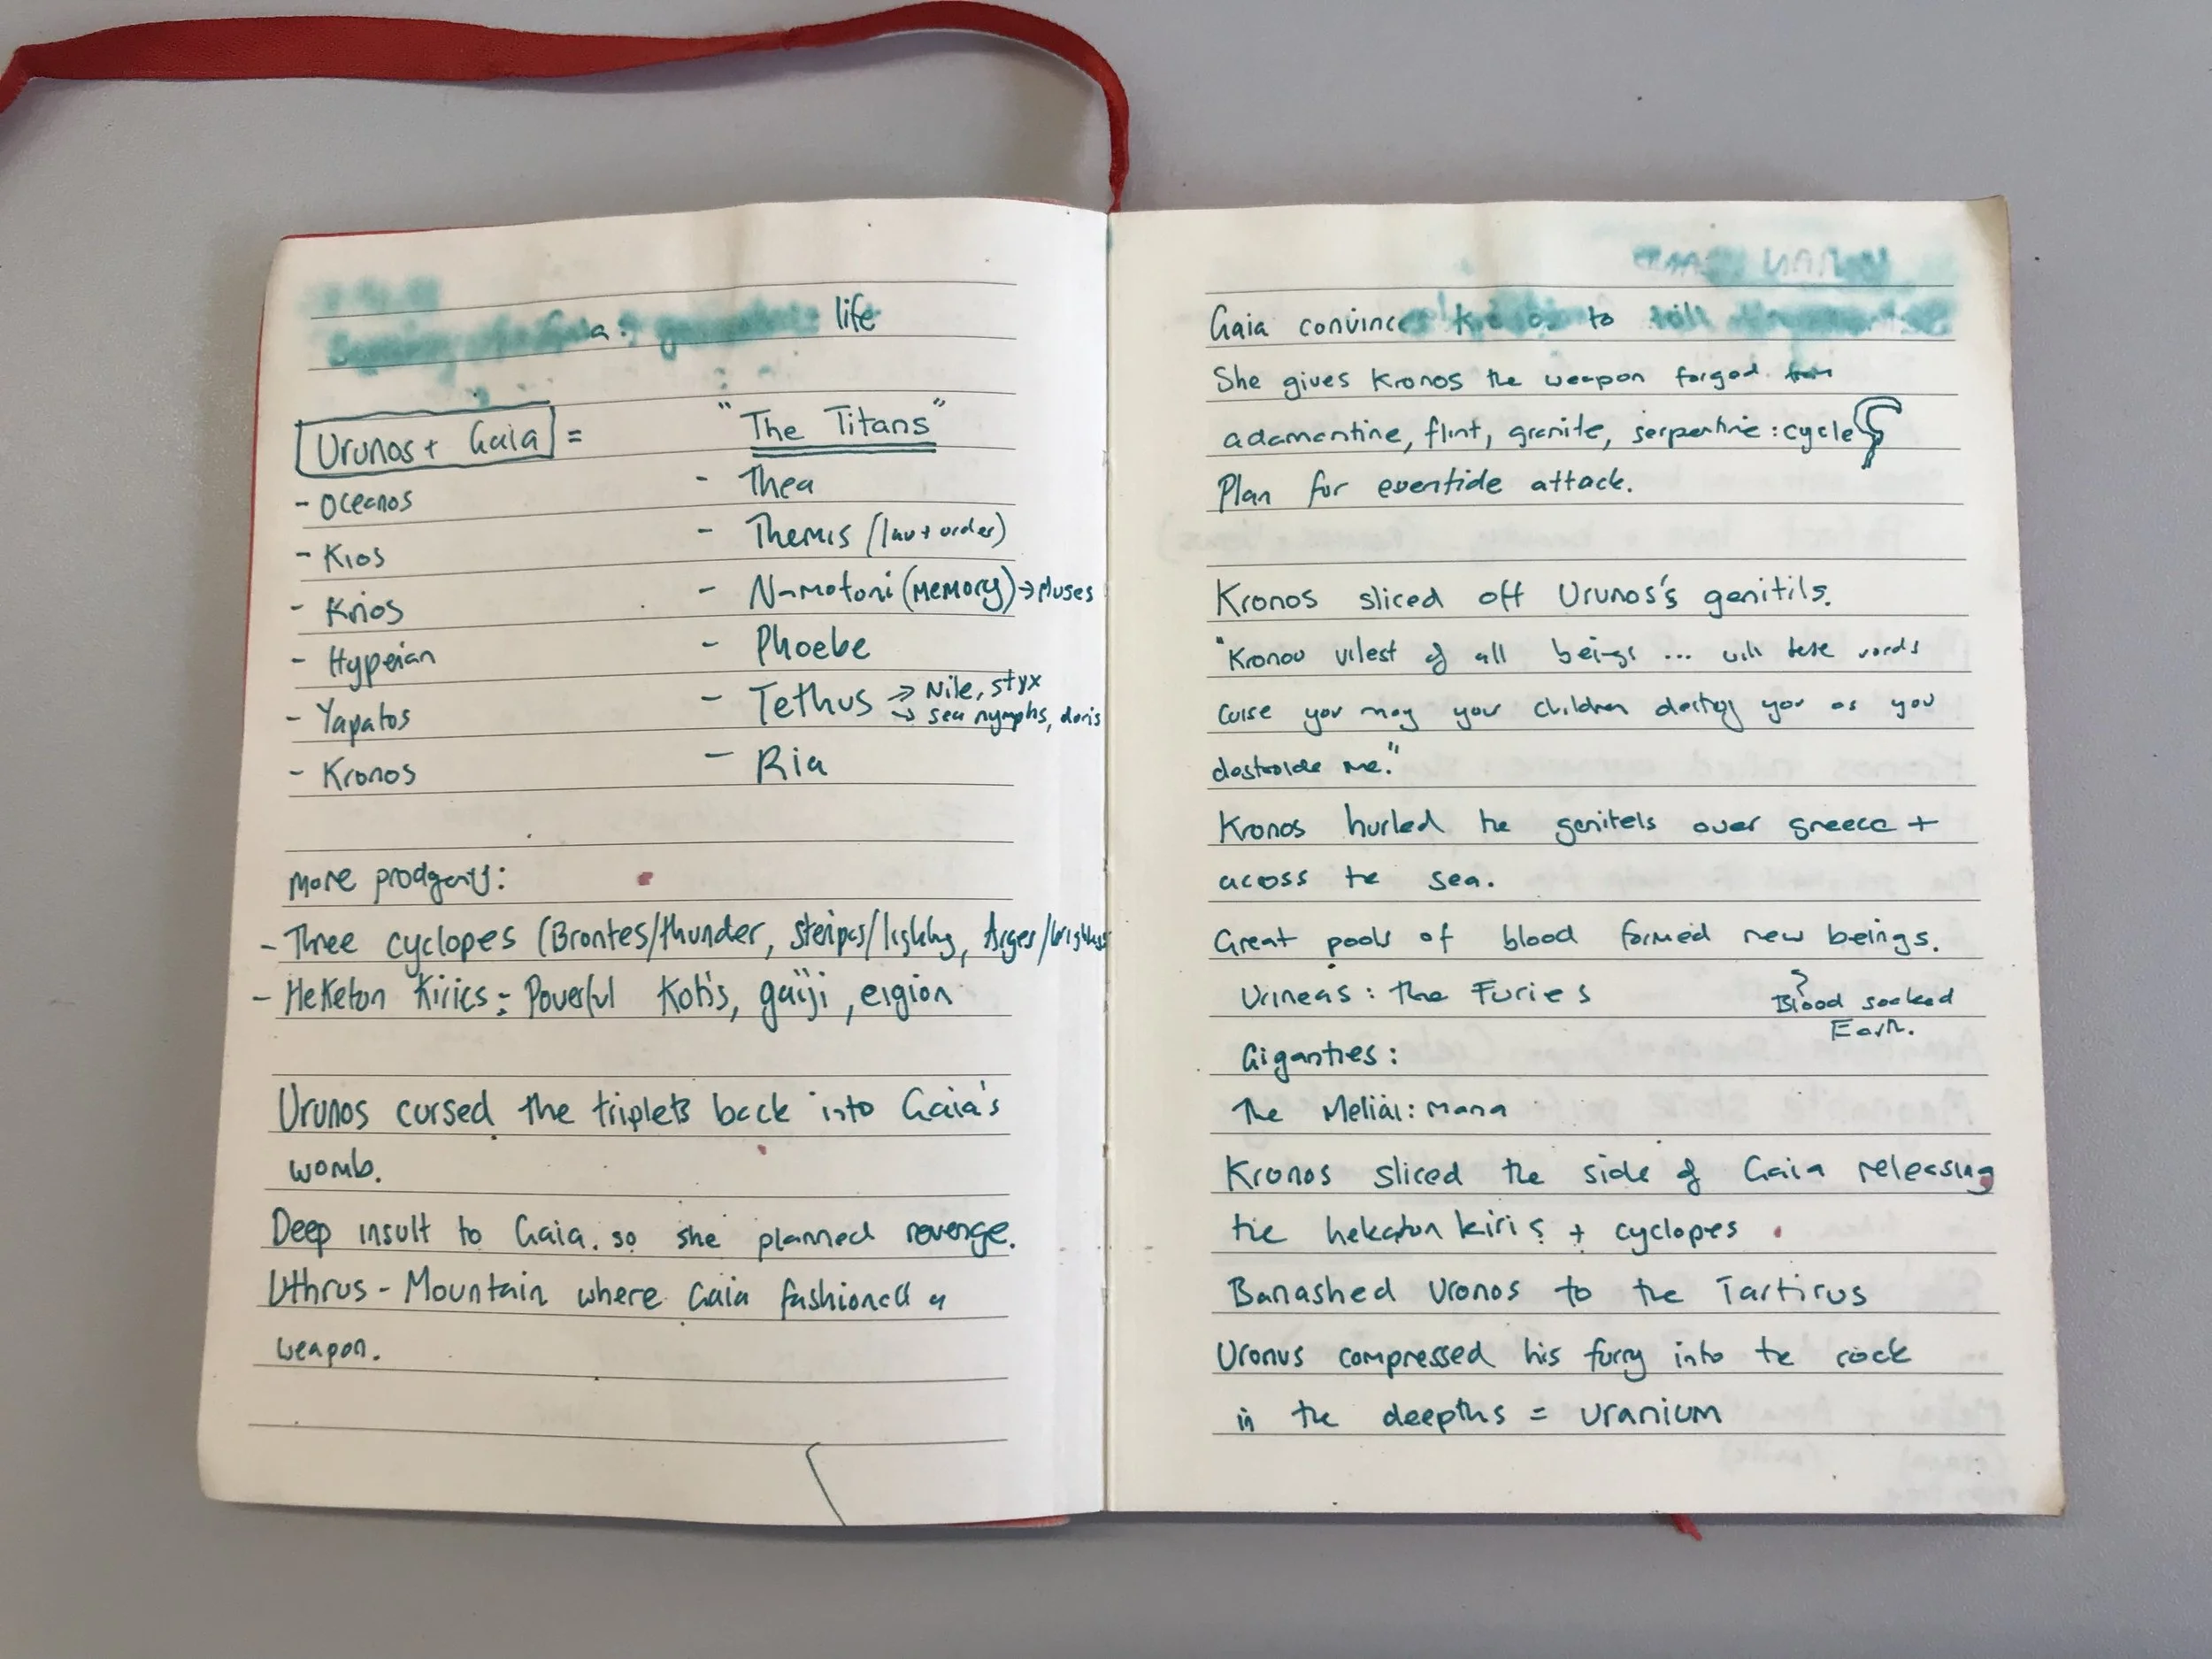 life
Urunos + Gaia =
- Oceanos
- Kios
- Krios
- Hypeian
- Yapatos
- Kronos
"The Titans"
- Thea
- Themis (law + order)
- N-motoni (MEMORY) → Muses
- Phoebe
- Tethus → Nile, styx
→ sea nymphs, doris
- Ria
More prodgeny:
- Three cyclopes (Brontes/thunder, Steripes/lighting, Arges/brightness
- HeKeton Kirics: Powerful Kotis, gaiji, eigion
Urunos cursed the triplets back into Gaia's
womb.
Deep insult to Gaia. so she planned revenge.
Uthrus - Mountain where Gaia fashioned a
weapon.
Gaia convinces Kronos to kill
She gives Kronos the weapon forged from
adamentine, flint, granite, serpentine: cycle
Plan for eventide attack.
Kronos sliced off Urunos's genitils.
"Kronou vilest of all beings ... with these words
curse you may your children destroy you as you
destroide me."
Kronos hurled the genitels over greece +
across the sea.
Great pools of blood formed new beings.
Urineas: the Furies
? Blood soaked
Earth.
Giganties:
The Meliai: mana
Kronos sliced the side of Gaia releasing
the hekaton kiris + cyclopes
Banashed Uronos to the Tartirus
Uronus compressed his furry into the rock
in the deepths = uranium